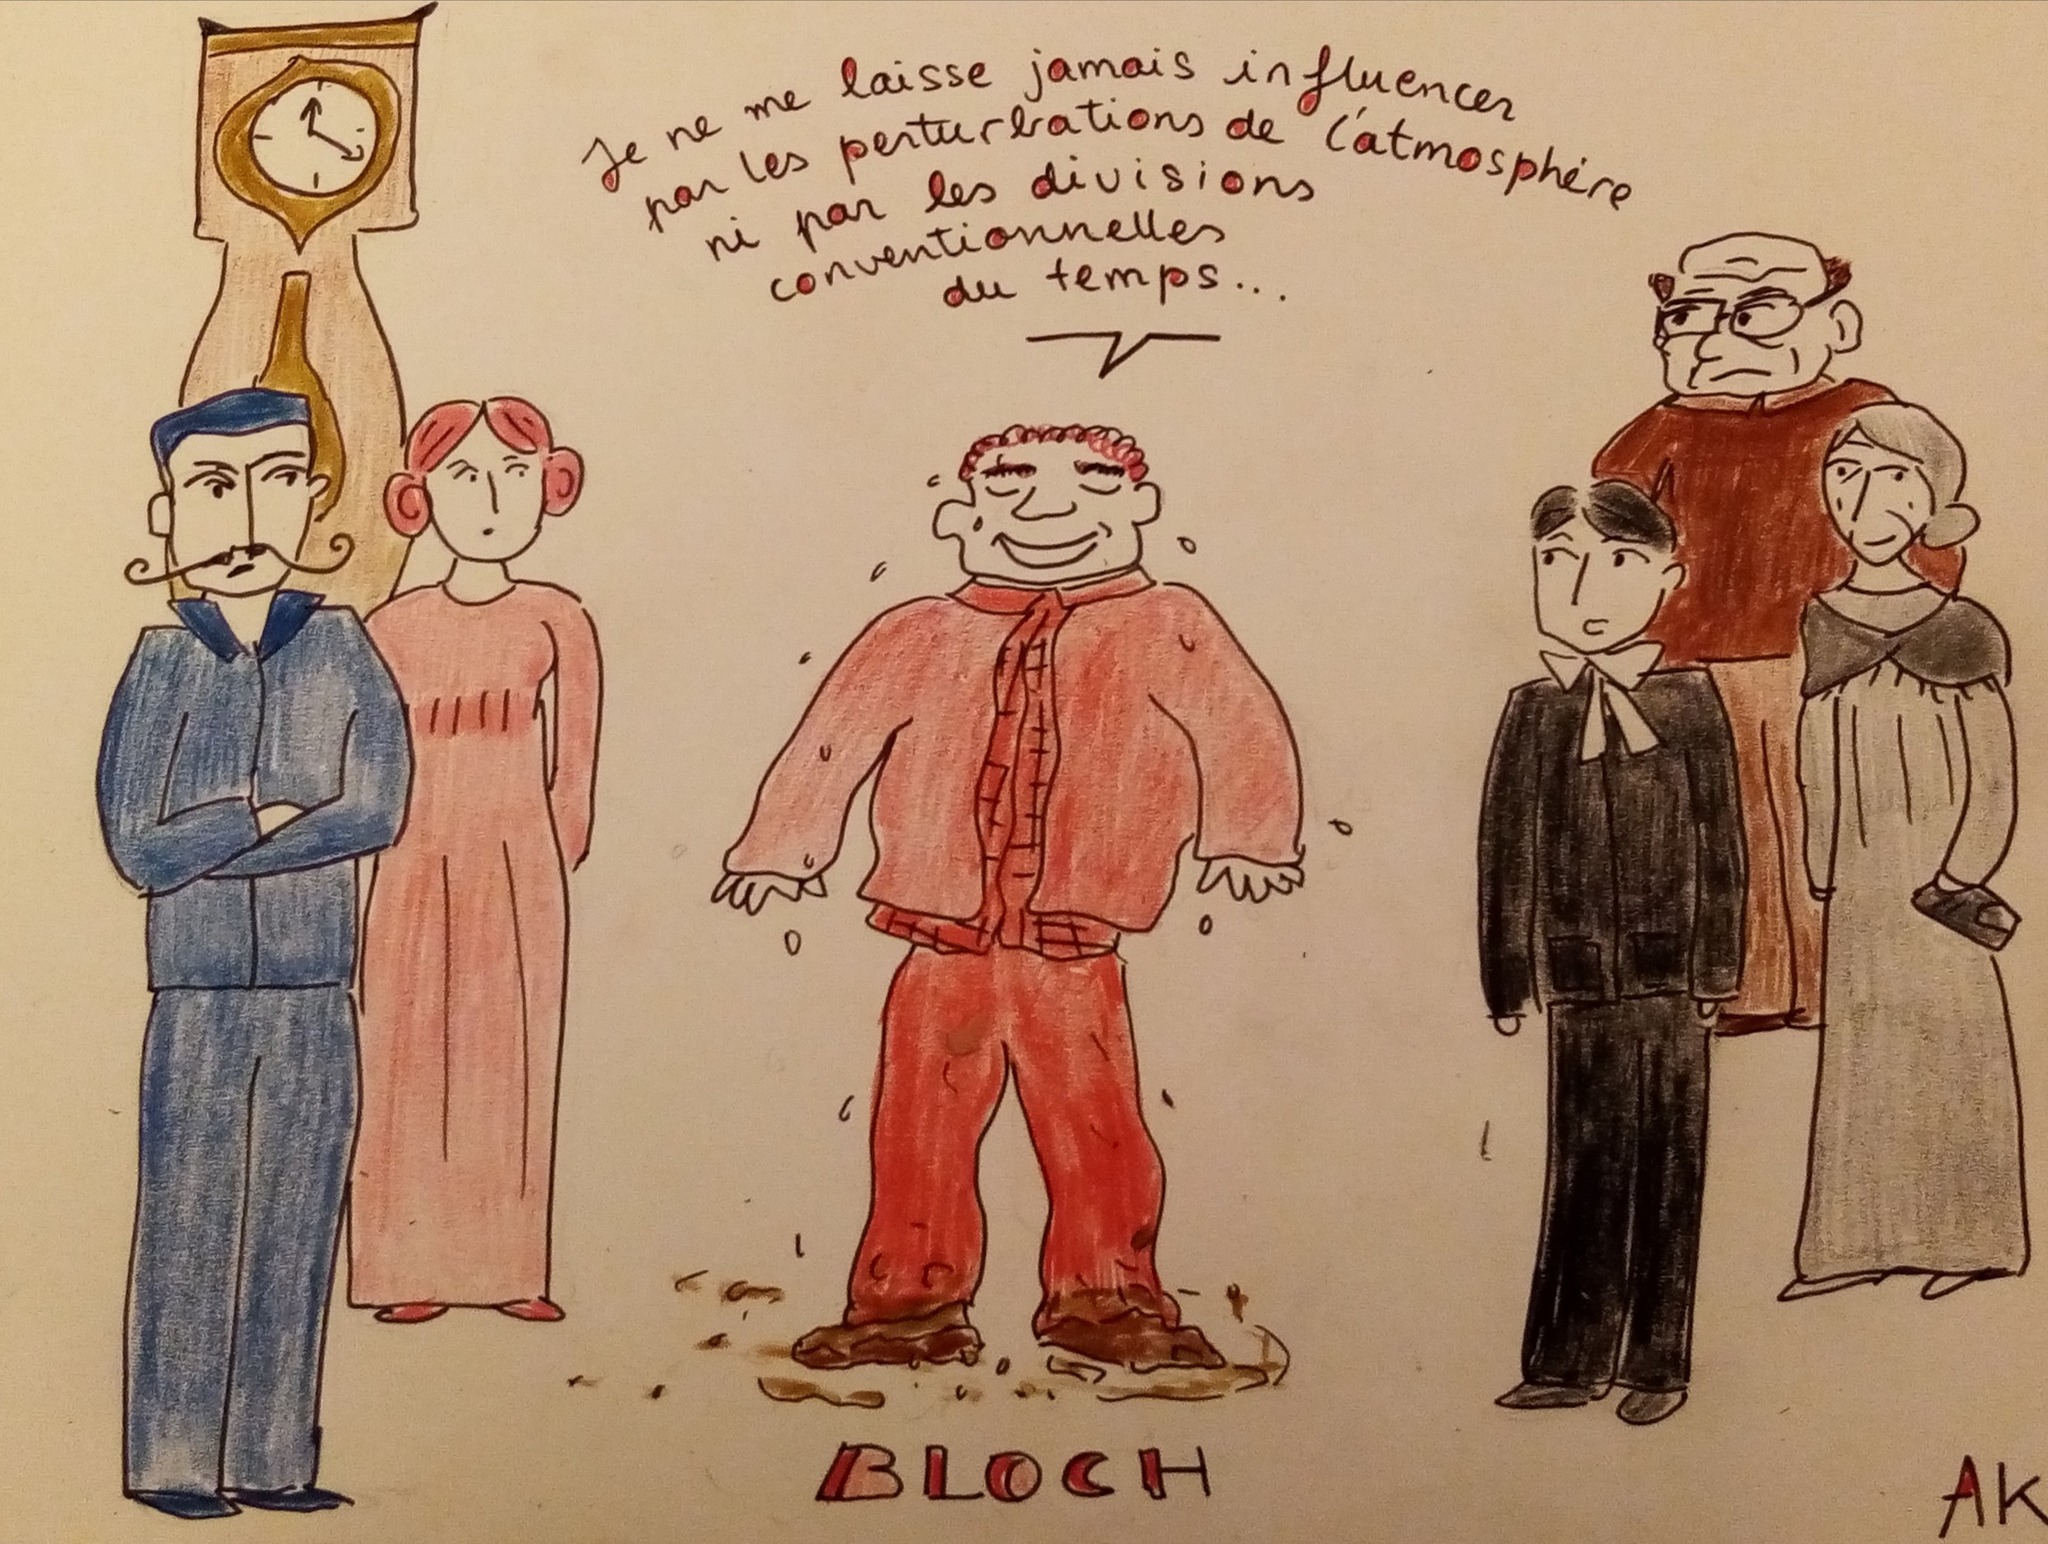 Je ne me laisse jamais influencer
par les perturbations de l'atmosphère
ni par les divisions
conventionnelles
du temps...
BLOCH
AK